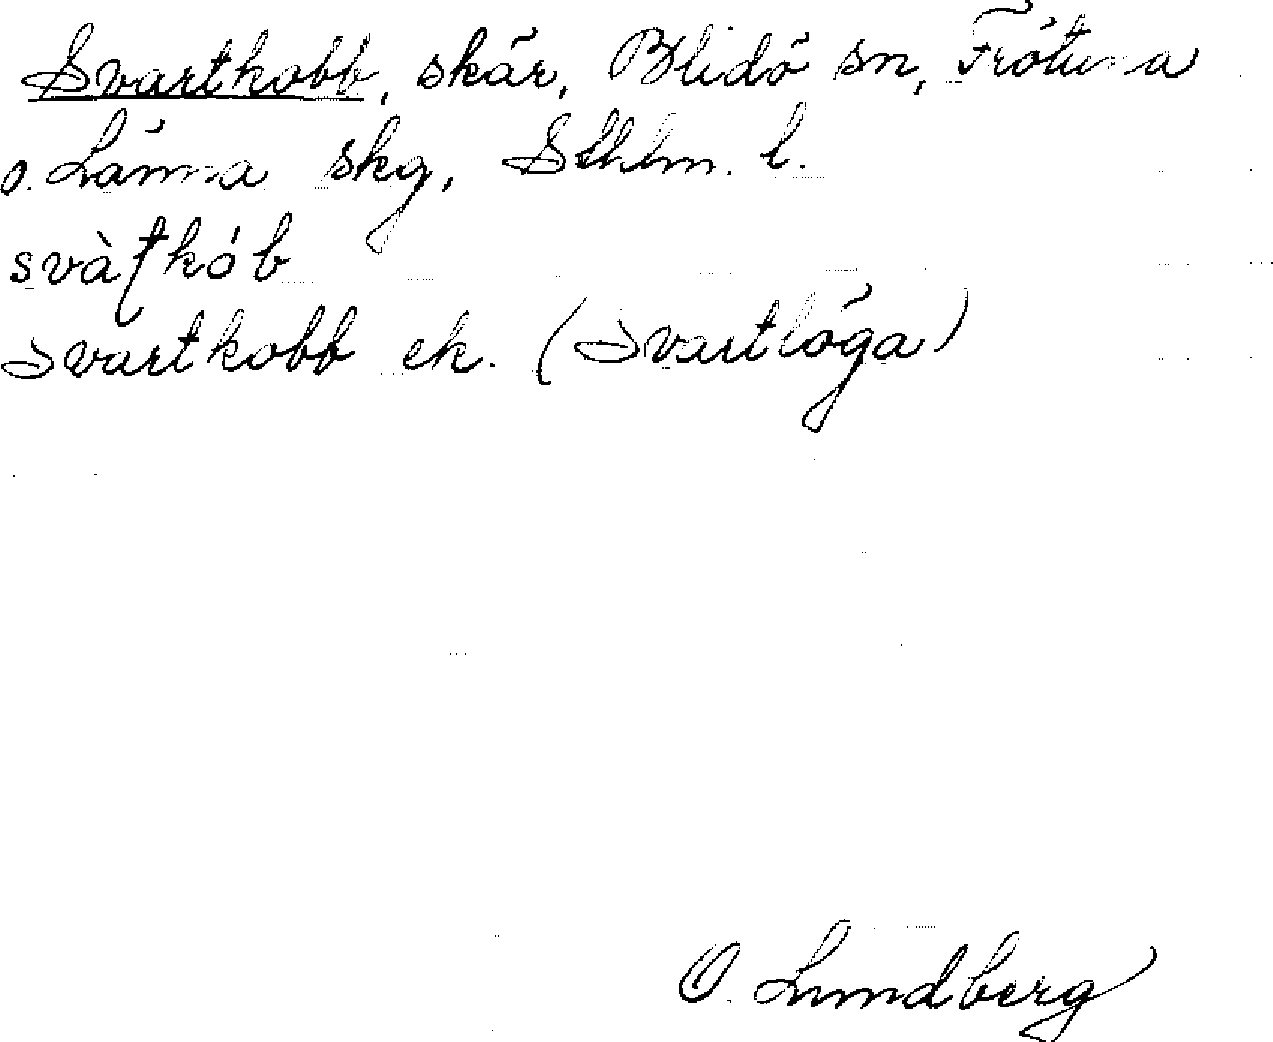 Svartkobb, skär, Blidö sn, Frötuna
o. Länna skg, Sthlm. l.
svàƭkób
Svartkobb ek. (Svartlöga)
O. Lundberg